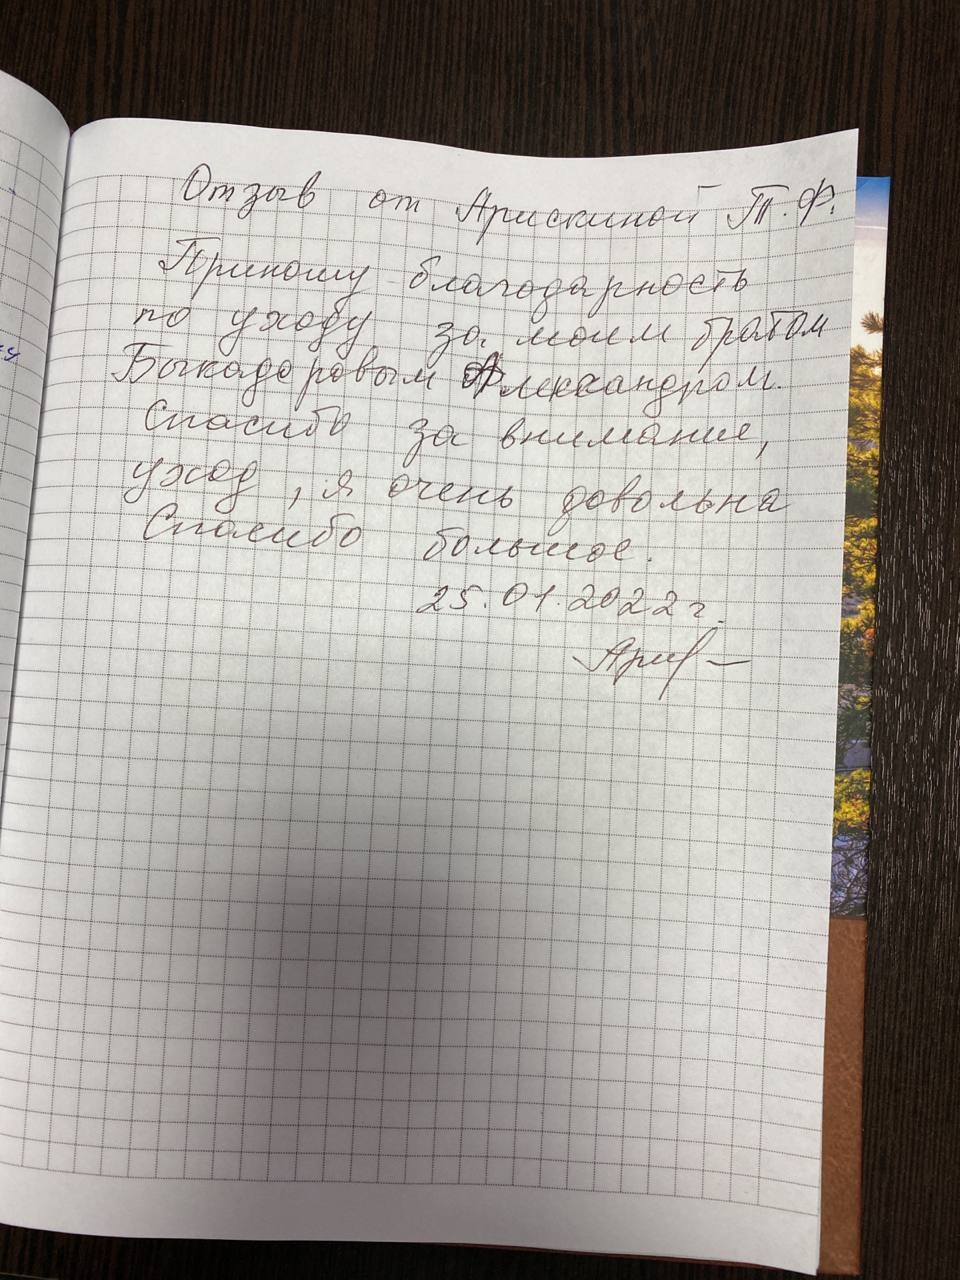 Отзыв от Арискиной Т.Ф.
Приношу благодарность
по уходу за моим братом
Быкадоровым Александром.
Спасибо за внимание,
уход, я очень довольна
Спасибо большое.
25.01.2022 г.